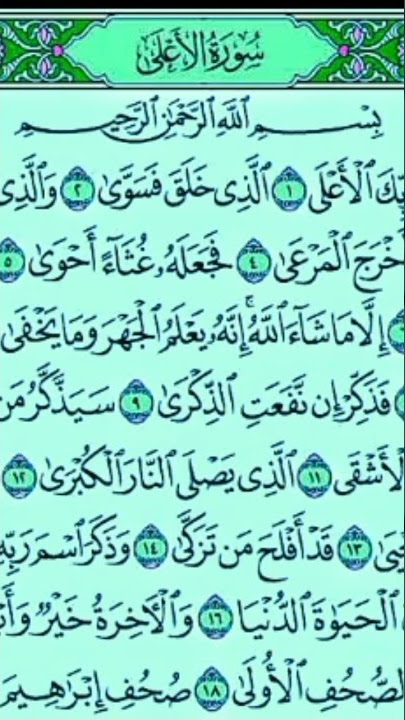 سُورَةُ الأَعْلَى
بِسْمِ اللَّهِ الرَّحْمَٰنِ الرَّحِيمِ
بِّكَ الْأَعْلَى ١ الَّذِي خَلَقَ فَسَوَّىٰ ٢ وَالَّذِي
خْرَجَ الْمَرْعَىٰ ٤ فَجَعَلَهُۥ غُثَاءً أَحْوَىٰ ٥
إِلَّا مَا شَاءَ اللَّهُ ۚ إِنَّهُۥ يَعْلَمُ الْجَهْرَ وَمَا يَخْفَىٰ
فَذَكِّرْ إِن نَّفَعَتِ الذِّكْرَىٰ ٩ سَيَذَّكَّرُ مَن
لْأَشْقَى ١١ الَّذِي يَصْلَى النَّارَ الْكُبْرَىٰ ١٢
يَىٰ ١٣ قَدْ أَفْلَحَ مَن تَزَكَّىٰ ١٤ وَذَكَرَ اسْمَ رَبِّهِ
الْحَيَوٰةَ الدُّنْيَا ١٦ وَالْآخِرَةُ خَيْرٌ وَأَبْ
لصُّحُفِ الْأُولَىٰ ١٨ صُحُفِ إِبْرَاهِيمَ